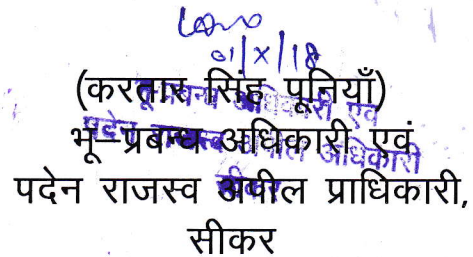 01/X/18
(करतार सिंह पूनियाँ)
भू–प्रबन्ध अधिकारी एवं
पदेन राजस्व अपील प्राधिकारी,
सीकर